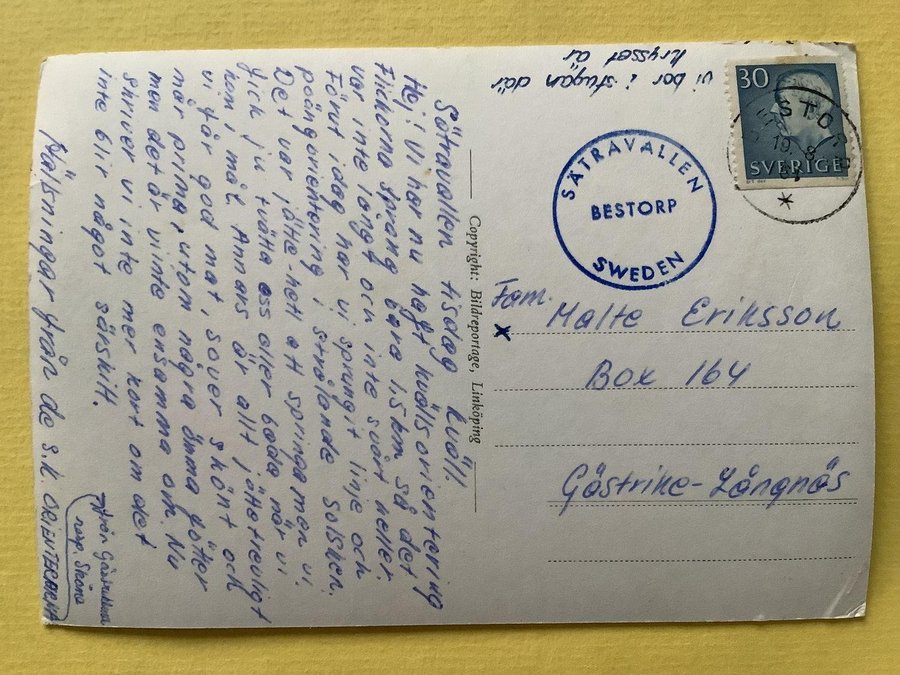 Sätravallen tisdag kväll.
Hej! Vi har nu haft kvällsorientering
Flickorna sprang bara 1,5 km så det
var inte långt och inte svårt heller.
Förut idag har vi sprungit linje och
poängorientering i strålande solsken.
Det var jätte-hett att springa men vi
fick ju tvätta oss eller bada när vi
kom i mål. Annars är allt jättetrevligt
vi får god mat, sover skönt och
mår prima, utom några ömma fötter
men det är vi inte ensamma om. Nu
skriver vi inte mer kort om det
inte blir något särskilt.
Hälsningar från de s.k. ORIENTERARNA
från Gästrikland
resp. Skåne
Copyright: Bildreportage, Linköping
vi bor i stugan där
krysset är
30
SVERIGE
STO
10 8
SÄTRAVALLEN
BESTORP
SWEDEN
Fam.
x Malte Eriksson
Box 164
Gästrike-Långnäs